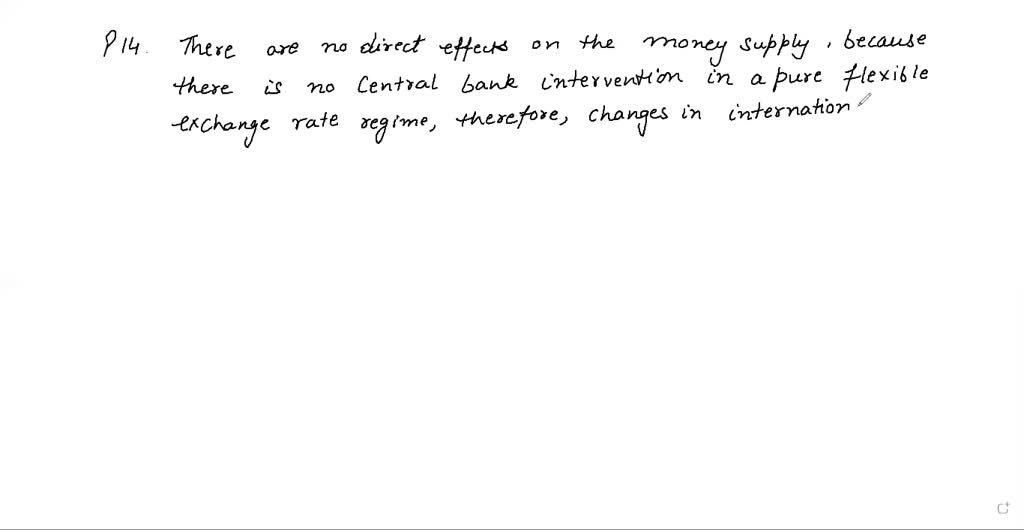 P 14. There are no direct effects on the money supply, because
there is no Central bank intervention in a pure flexible
exchange rate regime, therefore, changes in internation